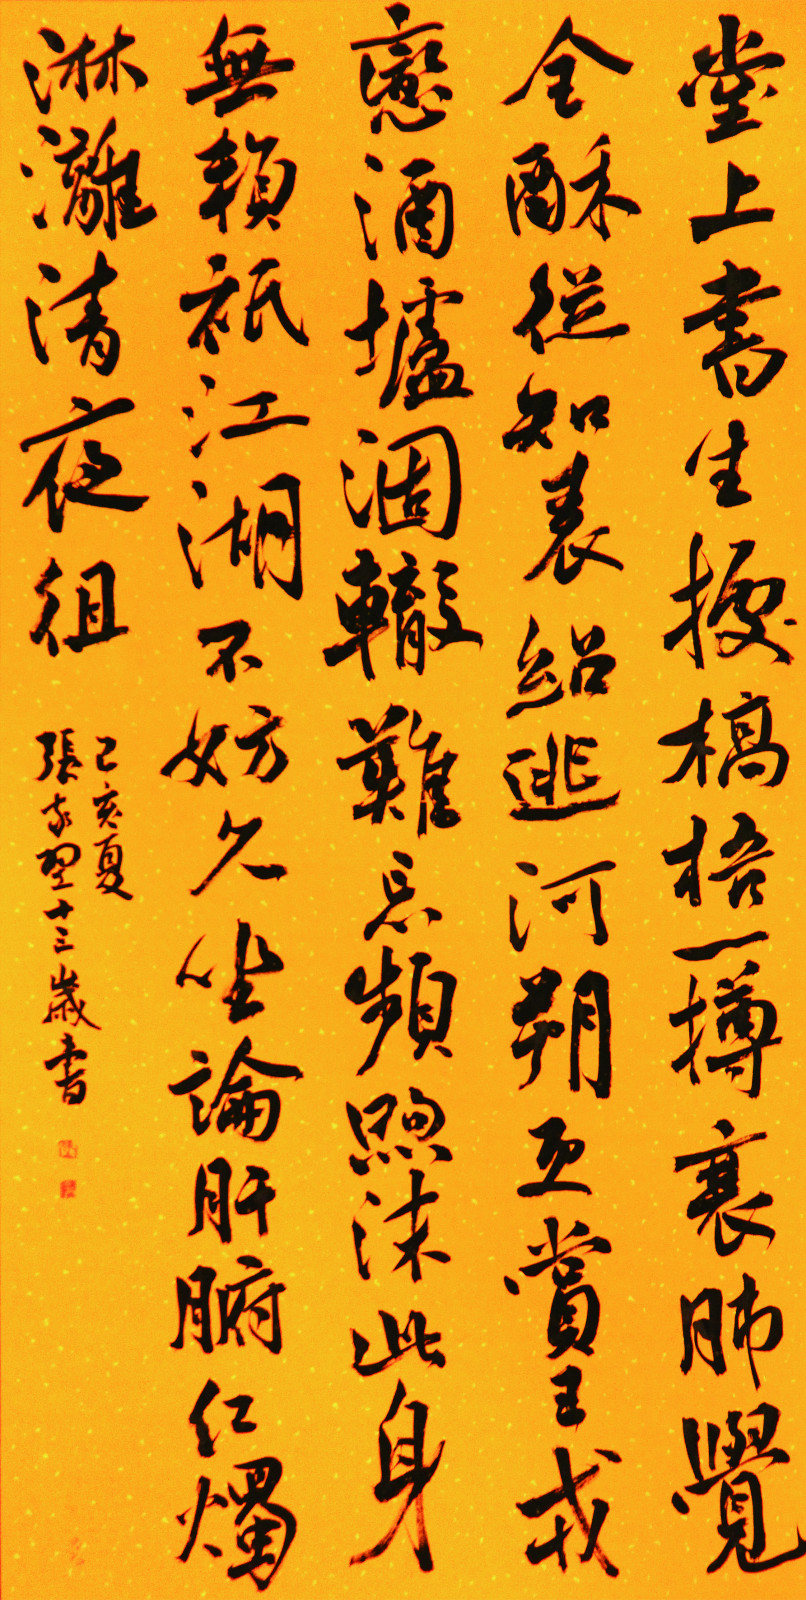 堂上書生據槁梧一樽衰肺覺
全酥從知袁紹逃河朔亟賞王戎
戀酒壚涸轍難忘頻煦沫此身
無賴祇江湖不妨久坐論肝腑紅燭
淋灕清夜徂
己亥夏
張家翌十三歲書